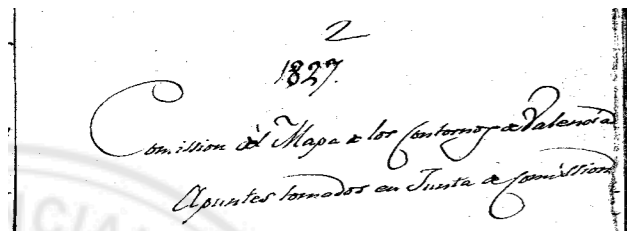 2
1827.
Comission del Mapa de los Contornos de Valencia
Apuntes tomados en Junta de Comission